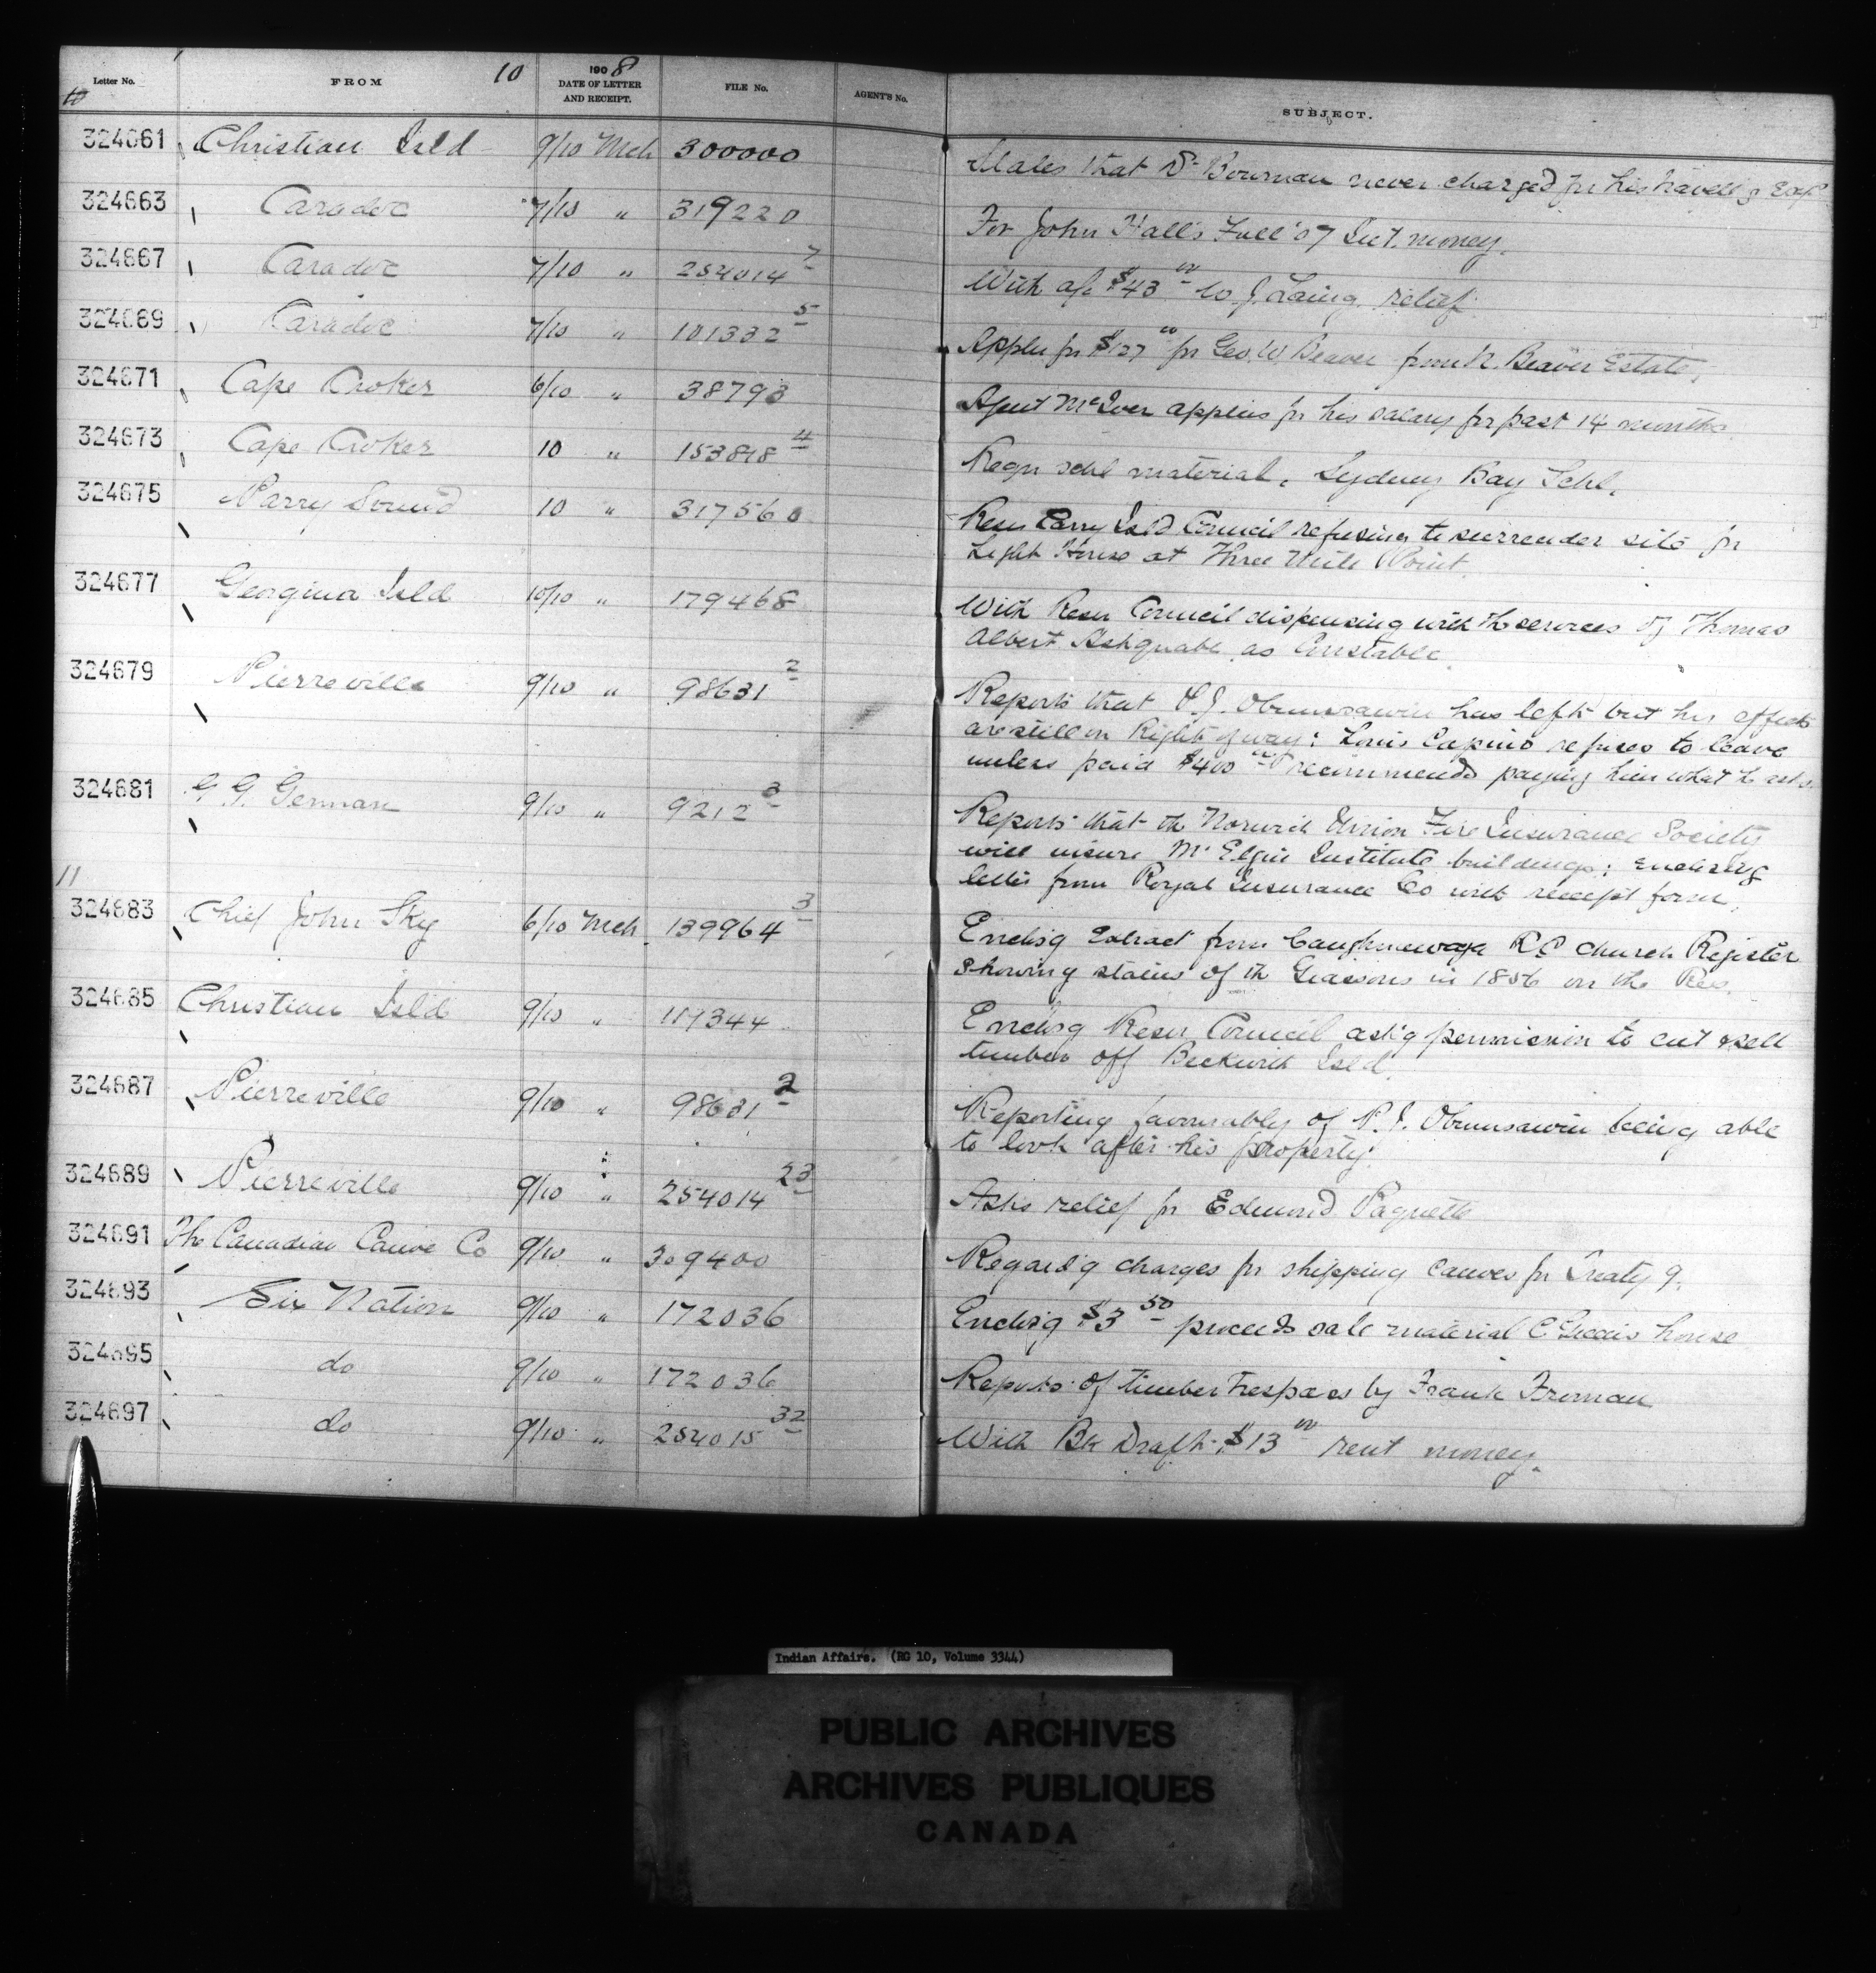 Letter No. FROM 10 1908 DATE OF LETTER AND RECEIPT. FILE No. AGENT'S No. SUBJECT.
10
324661 Christian Isld 9/10 Mch 300000 States that Dr Bowman never charged for his travell'g Exp
324663 Caradoc 7/10 " 319220 For John Hall's Fall '07 Int. money.
324667 Caradoc 7/10 " 254014 7 With a/c $43 00 to J Laing, relief.
324669 Caradoc 7/10 " 101332 5 Applies for $127 00 for Geo. W Beaver from N. Beaver Estate.
324671 Cape Croker 6/10 " 38793 Agent McIver applies for his salary for past 14 months
324673 Cape Croker 10 " 153848 4 Reqn schl material, Sydney Bay Schl.
324675 Parry Sound 10 " 317560 Resn Parry Isld Council refusing to surrender site for
Light House at Three Mile Point.
324677 Georgina Isld 10/10 " 179468 With Resn Council dispensing with the services of Thomas
Albert Ashquabe as Constable.
324679 Pierreville 9/10 " 98631 2 Reports that P.J. Obumsawin has left but his effects
are still on Right of way: Louis Capino refuses to leave
unless paid $400 00 recommends paying him what he asks.
324681 G. G. German 9/10 " 9212 3 Reports that the Norwich Union Fire Insurance Society
will insure Mt Elgin Institute buildings; enclos'g
letter from Royal Insurance Co with receipt form.
11
324683 Chief John Sky 6/10 Mch 139964 3 Enclos'g Extract from Caughnawaga R C Church Register
showing status of the Giassons in 1856 on the Res.
324685 Christian Isld 9/10 " 119344 Enclos'g Resn Council ask'g permission to cut & sell
timber off Beckwith Isld.
324687 Pierreville 9/10 " 98631 2 Reporting favourably of P. J. Obumsawin being able
to look after his property.
324689 Pierreville 9/10 " 254014 23 Asks relief for Edmond Paquette
324691 The Canadian Canoe Co 9/10 " 309400 Regard'g charges for shipping canoes for Treaty 9.
324693 Six Nation 9/10 " 172036 Enclos'g $3 50 proceeds sale material E Green's house
324695 do 9/10 " 172036 Reports of timber trespass by Frank Froman
324697 do 9/10 " 254015 32 With Bk Draft $13 00 rent money.
Indian Affairs. (RG 10, Volume 3344)
PUBLIC ARCHIVES
ARCHIVES PUBLIQUES
CANADA